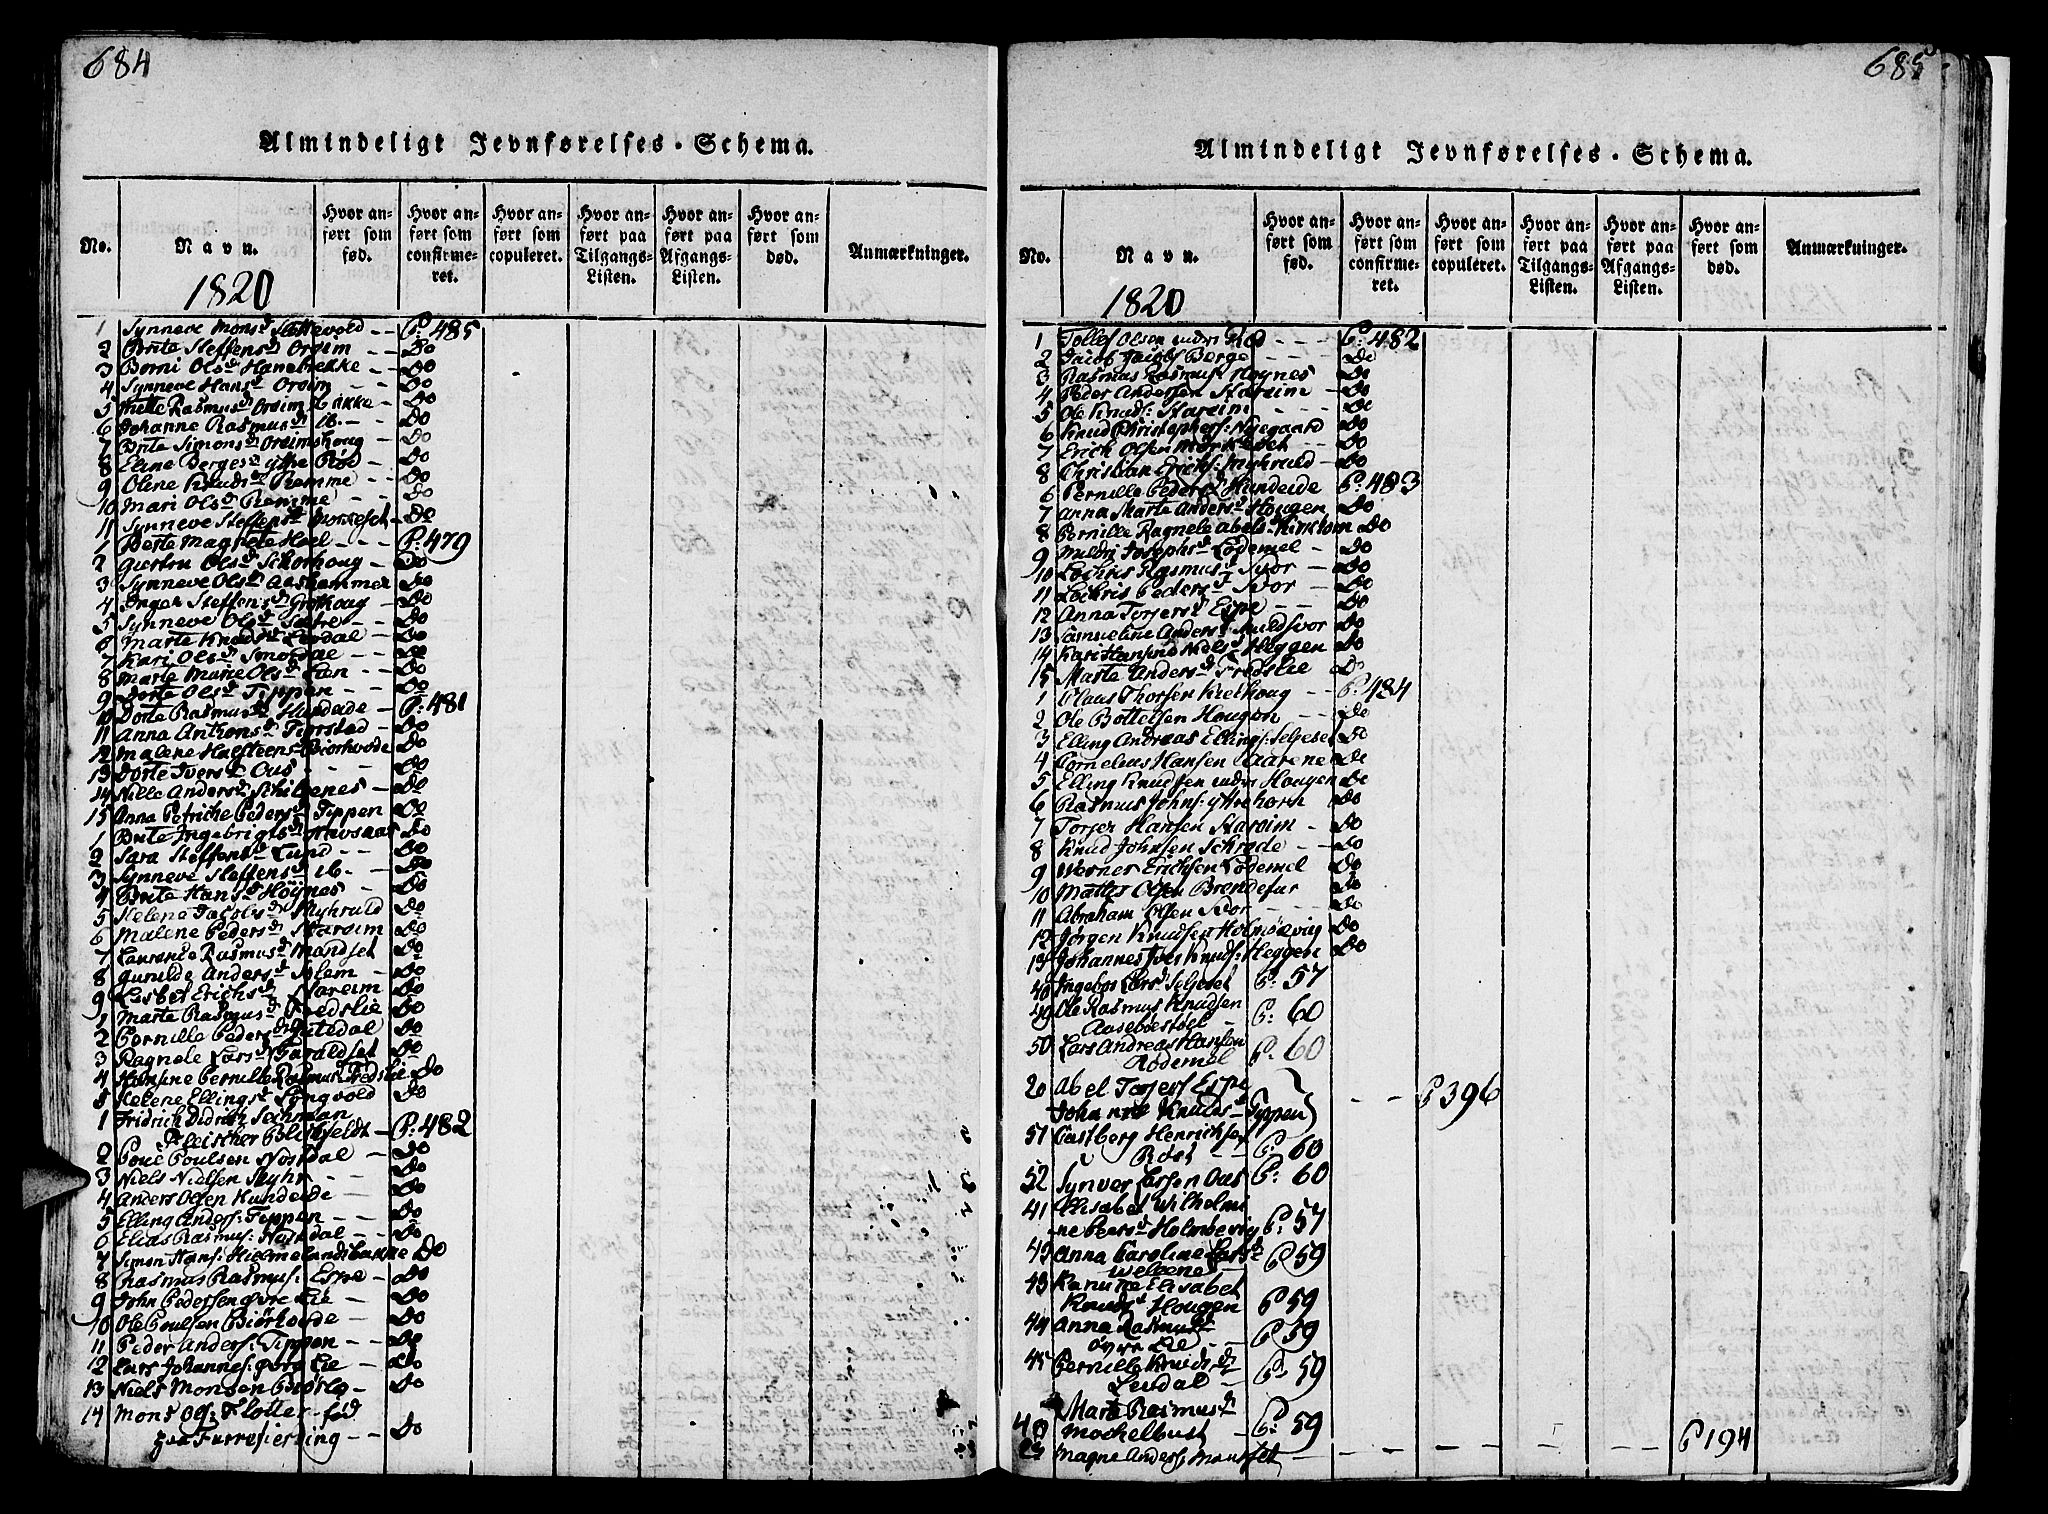 684
Almindeligt Jevnførelses-Schema.
No.
Navn.
Hvor anført som fød.
Hvor anført som confirmeret.
Hvor anført som copuleret.
Hvor anført paa Tilgangs-Listen.
Hvor anført paa Afgangs-Listen.
Hvor anført som død.
Anmærkninger.
1820
1 Synneve Monsd. - - P: 485
2 Brite Steffensd. Orsim - - Do
3 Berni Olsd. Hanebrekke - Do
4 Synneve Hansd. Orsim - - Do
5 Mette Rasmusd. Orsim - Do
6 Johanne Rasmusd. ib. - - Do
7 Brite Simonsd. Orsimshoug - Do
8 Eline Bergesd. ytre Rød - Do
9 Olene Knudsd. Remme - Do
10 Mari Olsd. Remme - - Do
11 Synneve Steffensd. - Do
1 Berte Magrete Hoel - - - P: 479
2 Giertru Olsd. Schorhoug - Do
3 Synneve Olsd. Aashammer Do
4 Inger Steffensd. Grothoug - Do
5 Synneve Olsd. Sætre - - Do
6 Marte Knudsd. Leedal - Do
7 Kari Olsd. Smordal - - Do
8 Marte Marie Olsd. Lien - - Do
9 Dorte Olsd. Tippen - - Do
10 Dorte Rasmusd. Hundeide - P: 481
11 Anna Antonsd. - Do
12 Malene Halsteens. Biørhovde Do
13 Dorte Iversd. Ous - - - Do
14 Nille Andersd. Schibenes - Do
15 Anna Petriche Pedersd. Tippen - Do
1 Brite Ingebrigtsd. Navsaae Do
2 Sara Steffensd. Lund - - Do
3 Synneve Steffensd. ib. - - Do
4 Brite Hansd. Høynes - Do
5 Helena Jacobsd. Myhruld Do
6 Malene Pedersd. Stareim Do
7 Laurence Rasmusd. Mandset Do
8 Gurulde Andersd. Solem - Do
9 Lisbet Erichsd. Nareim Do
1 Marte Rasmusd. Fredslie Do
2 Pernille Pedersd. Do
3 Ragnele Larsd. Haraldset Do
4 Hansine Pernille Rasmus. Fredslie. Do
5 Helene Ellingsd. Lyngvold Do
1 Fridrich Didrich Sechman
Fleischer Blichfeldt - P: 482
2 Povel Poulsen Nosdal - Do
3 Niels Nielsen Myhr - - Do
4 Anders Olsen Hundeide - Do
5 Elling Anders: Tippen - - Do
6 Elias Rasmus: Nosdal - Do
7 Simon Hans: Hielmelandsbakke Do
8 Rasmus Rasmus: Espe - Do
9 John Pedersen øvre Lie - Do
10 Ole Poulsen Biørhovde - Do
11 Peder Anders: Tippen - - Do
12 Lars Johannes: øvre Lie - Do
13 Niels Monsen Biørlo - Do
14 Mons Ols: Flotter fød
paa Furrefierding - - Do
685
Almindeligt Jevnførelses-Schema.
No.
Navn.
Hvor anført som fød.
Hvor anført som confirmeret.
Hvor anført som copuleret.
Hvor anført paa Tilgangs-Listen.
Hvor anført paa Afgangs-Listen.
Hvor anført som død.
Anmærkninger.
1820
1 Tollef Olsen indre Rød - - - P: 482
2 Jacob Jacobs Berge - - - Do
3 Rasmus Rasmus. Høynes Do
4 Peder Andersen Stareim - Do
5 Ole Knuds: Stareim - - - Do
6 Knud Christophers: Nygaard Do
7 Erich Olsen - - Do
8 Christian Erichs: Myhruld - Do
6 Pernille Pedersd. Hundeide P: 483
7 Anna Marte Andersd. Hougen Do
8 Pernille Ragnele Abels. Kirkhorn Do
9 Josephsd. Lødemel - Do
10 Lochris Rasmusd. Svor - - Do
11 Lochris Pedersd. Svor - - Do
12 Anna Torgersd. Espe - - - Do
13 Samueline Anders. Do
14 Kari Hansine Nielsd. Heggen Do
15 Marte Andersd. Fredslie Do
1 Claus Thorsen - - P: 484
2 Ole Bottelsen Hougen - - Do
3 Elling Andreas Ellings: Seljeset Do
4 Cornelius Hansen Aarene Do
5 Elling Knudsen indre Hougen Do
6 Rasmus Johns: ytrehorn Do
7 Torger Hansen Stareim - Do
8 Knud Johnsen Schrede - - Do
9 Werner Erichsen Lødemel Do
10 Mattis Olsen Brendefur Do
11 Abraham Olsen Svor - - - Do
12 Jørgen Knudsen Holmøevig Do
13 Johannes Knuds: Heggen Do
40 Ingebor Larsd. Seljeset P: 57
49 Ole Rasmus Knudsen
Aasebøestøel - P: 60
50 Lars Andreas Hansen
Rødemel P: 60
20 Abel Torgers Espe
Johanne Knudsd. Tippen } - - P 396
51 Castberg Henrichsen
Røst - - P: 60
52 Synver Larsen Ous P: 60
41 Elisabet Wilhelmi
ne Peersd. Holmøevig P: 57
42 Anna Caroline Larsd.
Welvenes - P 59
43 Kanutte Elisabet
Knudsd. Hougen P 59
44 Anne Rasmusd.
øvre Lie - - P 59
45 Pernille Knudsd.
Leedal - P. 59
Mari Rasmusd.
Mochelbust - P: 59
Magne Anders: - - - - P 194